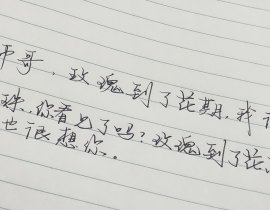 哥，玫瑰到了花期，我
你看见了吗？玫瑰到了花
也很想你。